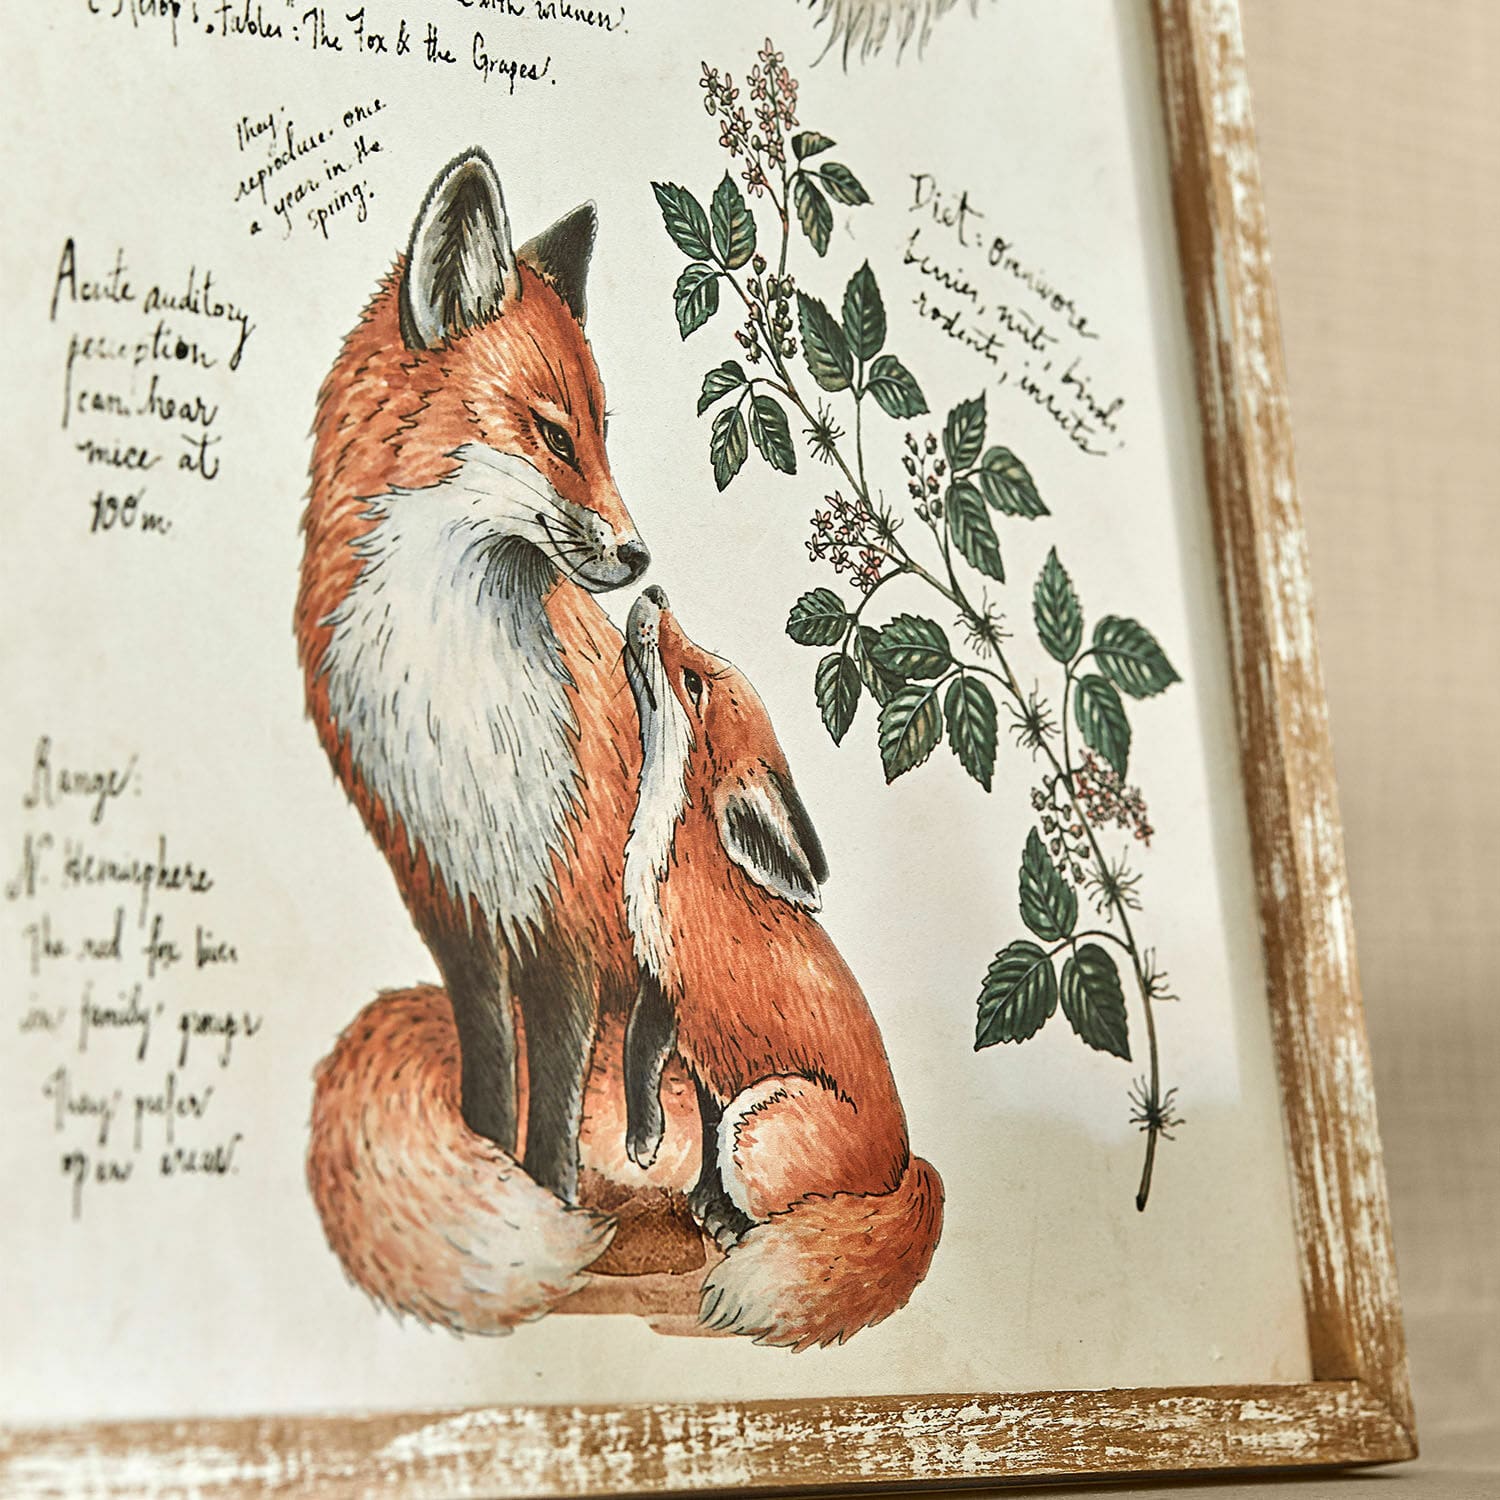 Aesop's Fables: The Fox & the Grapes.
with wiliness.
They
reproduce once
a year in the
spring.
Acute auditory
perception
can hear
mice at
100m.
Diet: Omnivore
berries, nuts, birds,
rodents, insects
Range:
N. Hemisphere
The red fox lives
in family groups
They prefer
open areas.